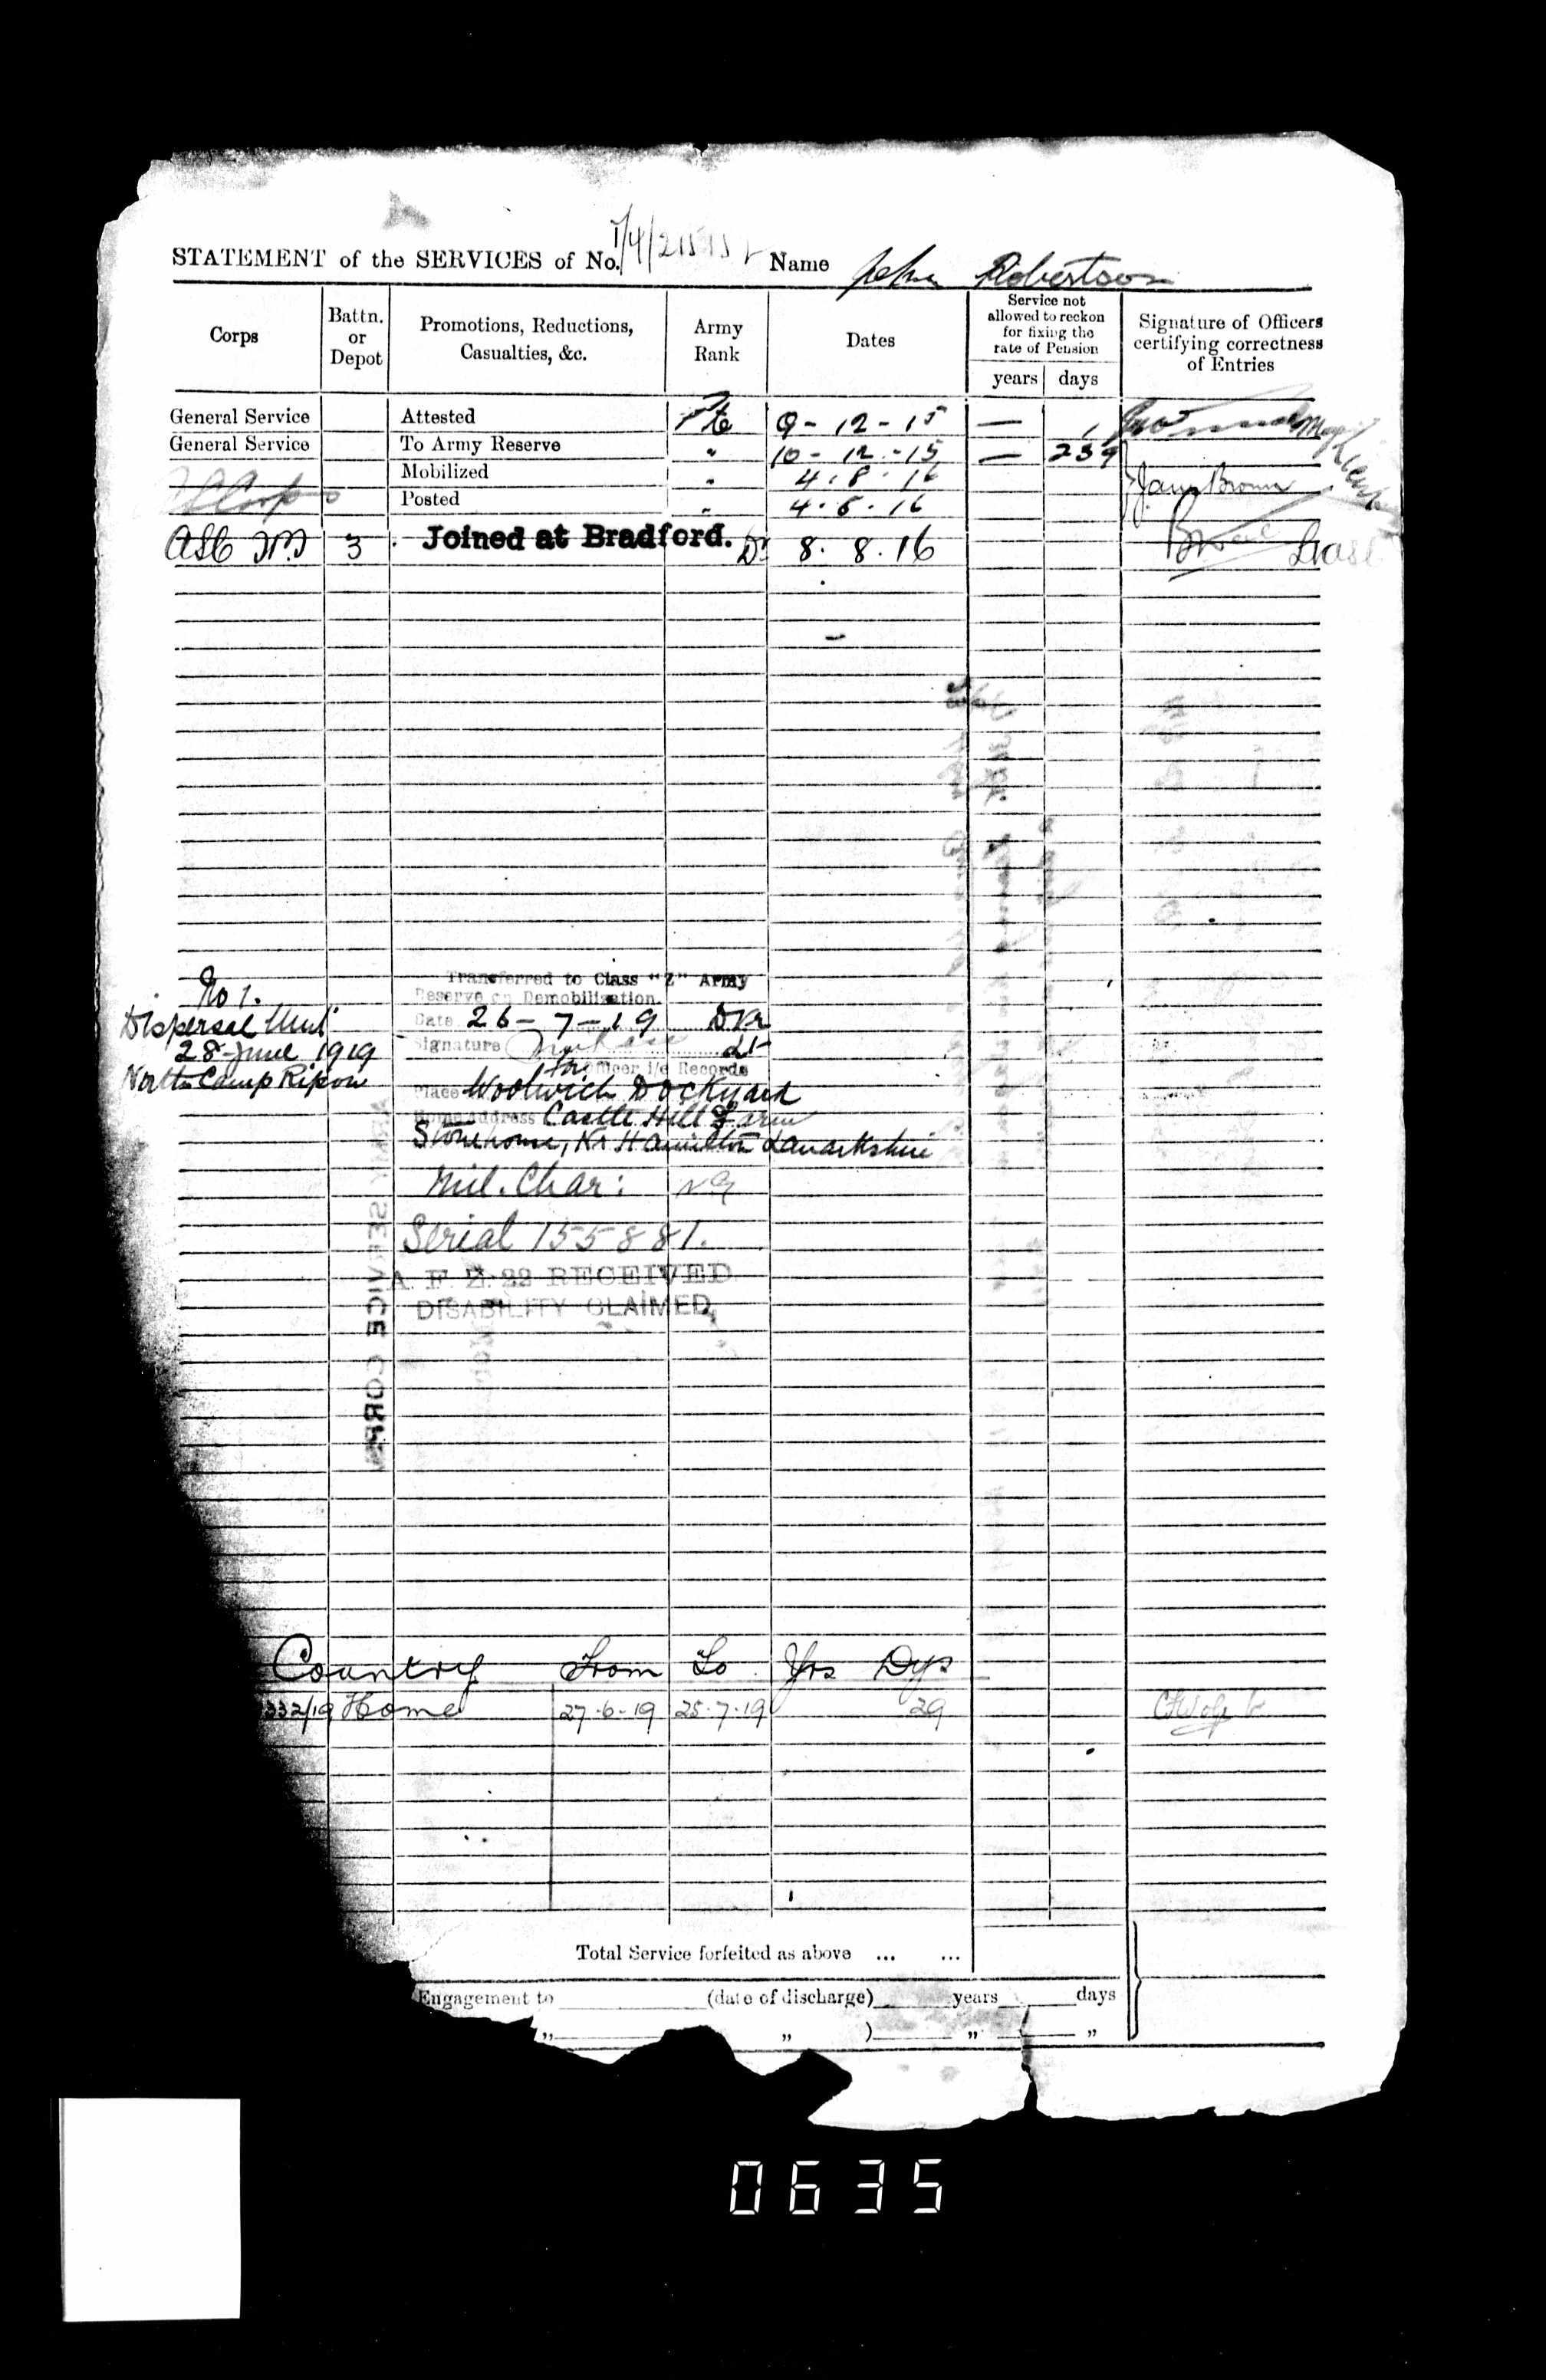 STATEMENT of the SERVICES of No. Name John Robertson
Corps
Battn. or Depot
Promotions, Reductions, Casualties, &c.
Army Rank
Dates
Service not allowed to reckon for fixing the rate of Pension
years days
Signature of Officers certifying correctness of Entries
General Service Attested Pte 9-12-15 — 1
General Service To Army Reserve " 10-12-15 — 239
Mobilized " 4.8.16 Jas Brown
Posted " 4.8.16
ASC 3 Joined at Bradford. Dr 8.8.16
Transferred to Class "Z" Army
Reserve on Demobilization.
No 1.
Dispersal Unit
28 June 1919
North Camp Ripon
Date 26-7-19 Dvr
Signature Lt
for Officer i/c Records
Place Woolwich Dockyard
Home Address Castle Hill Farm
Stonehouse, Nr Hamilton Lanarkshire
Mil. Char: VG
Serial 155881.
A F Z 22 RECEIVED
DISABILITY CLAIMED
ARMY SERVICE CORPS
Country From To Yrs Dys
332/19 Home 27-6-19 25.7.19 29
Total Service forfeited as above ... ...
Engagement to (date of discharge) years days
" " ) " "
0635